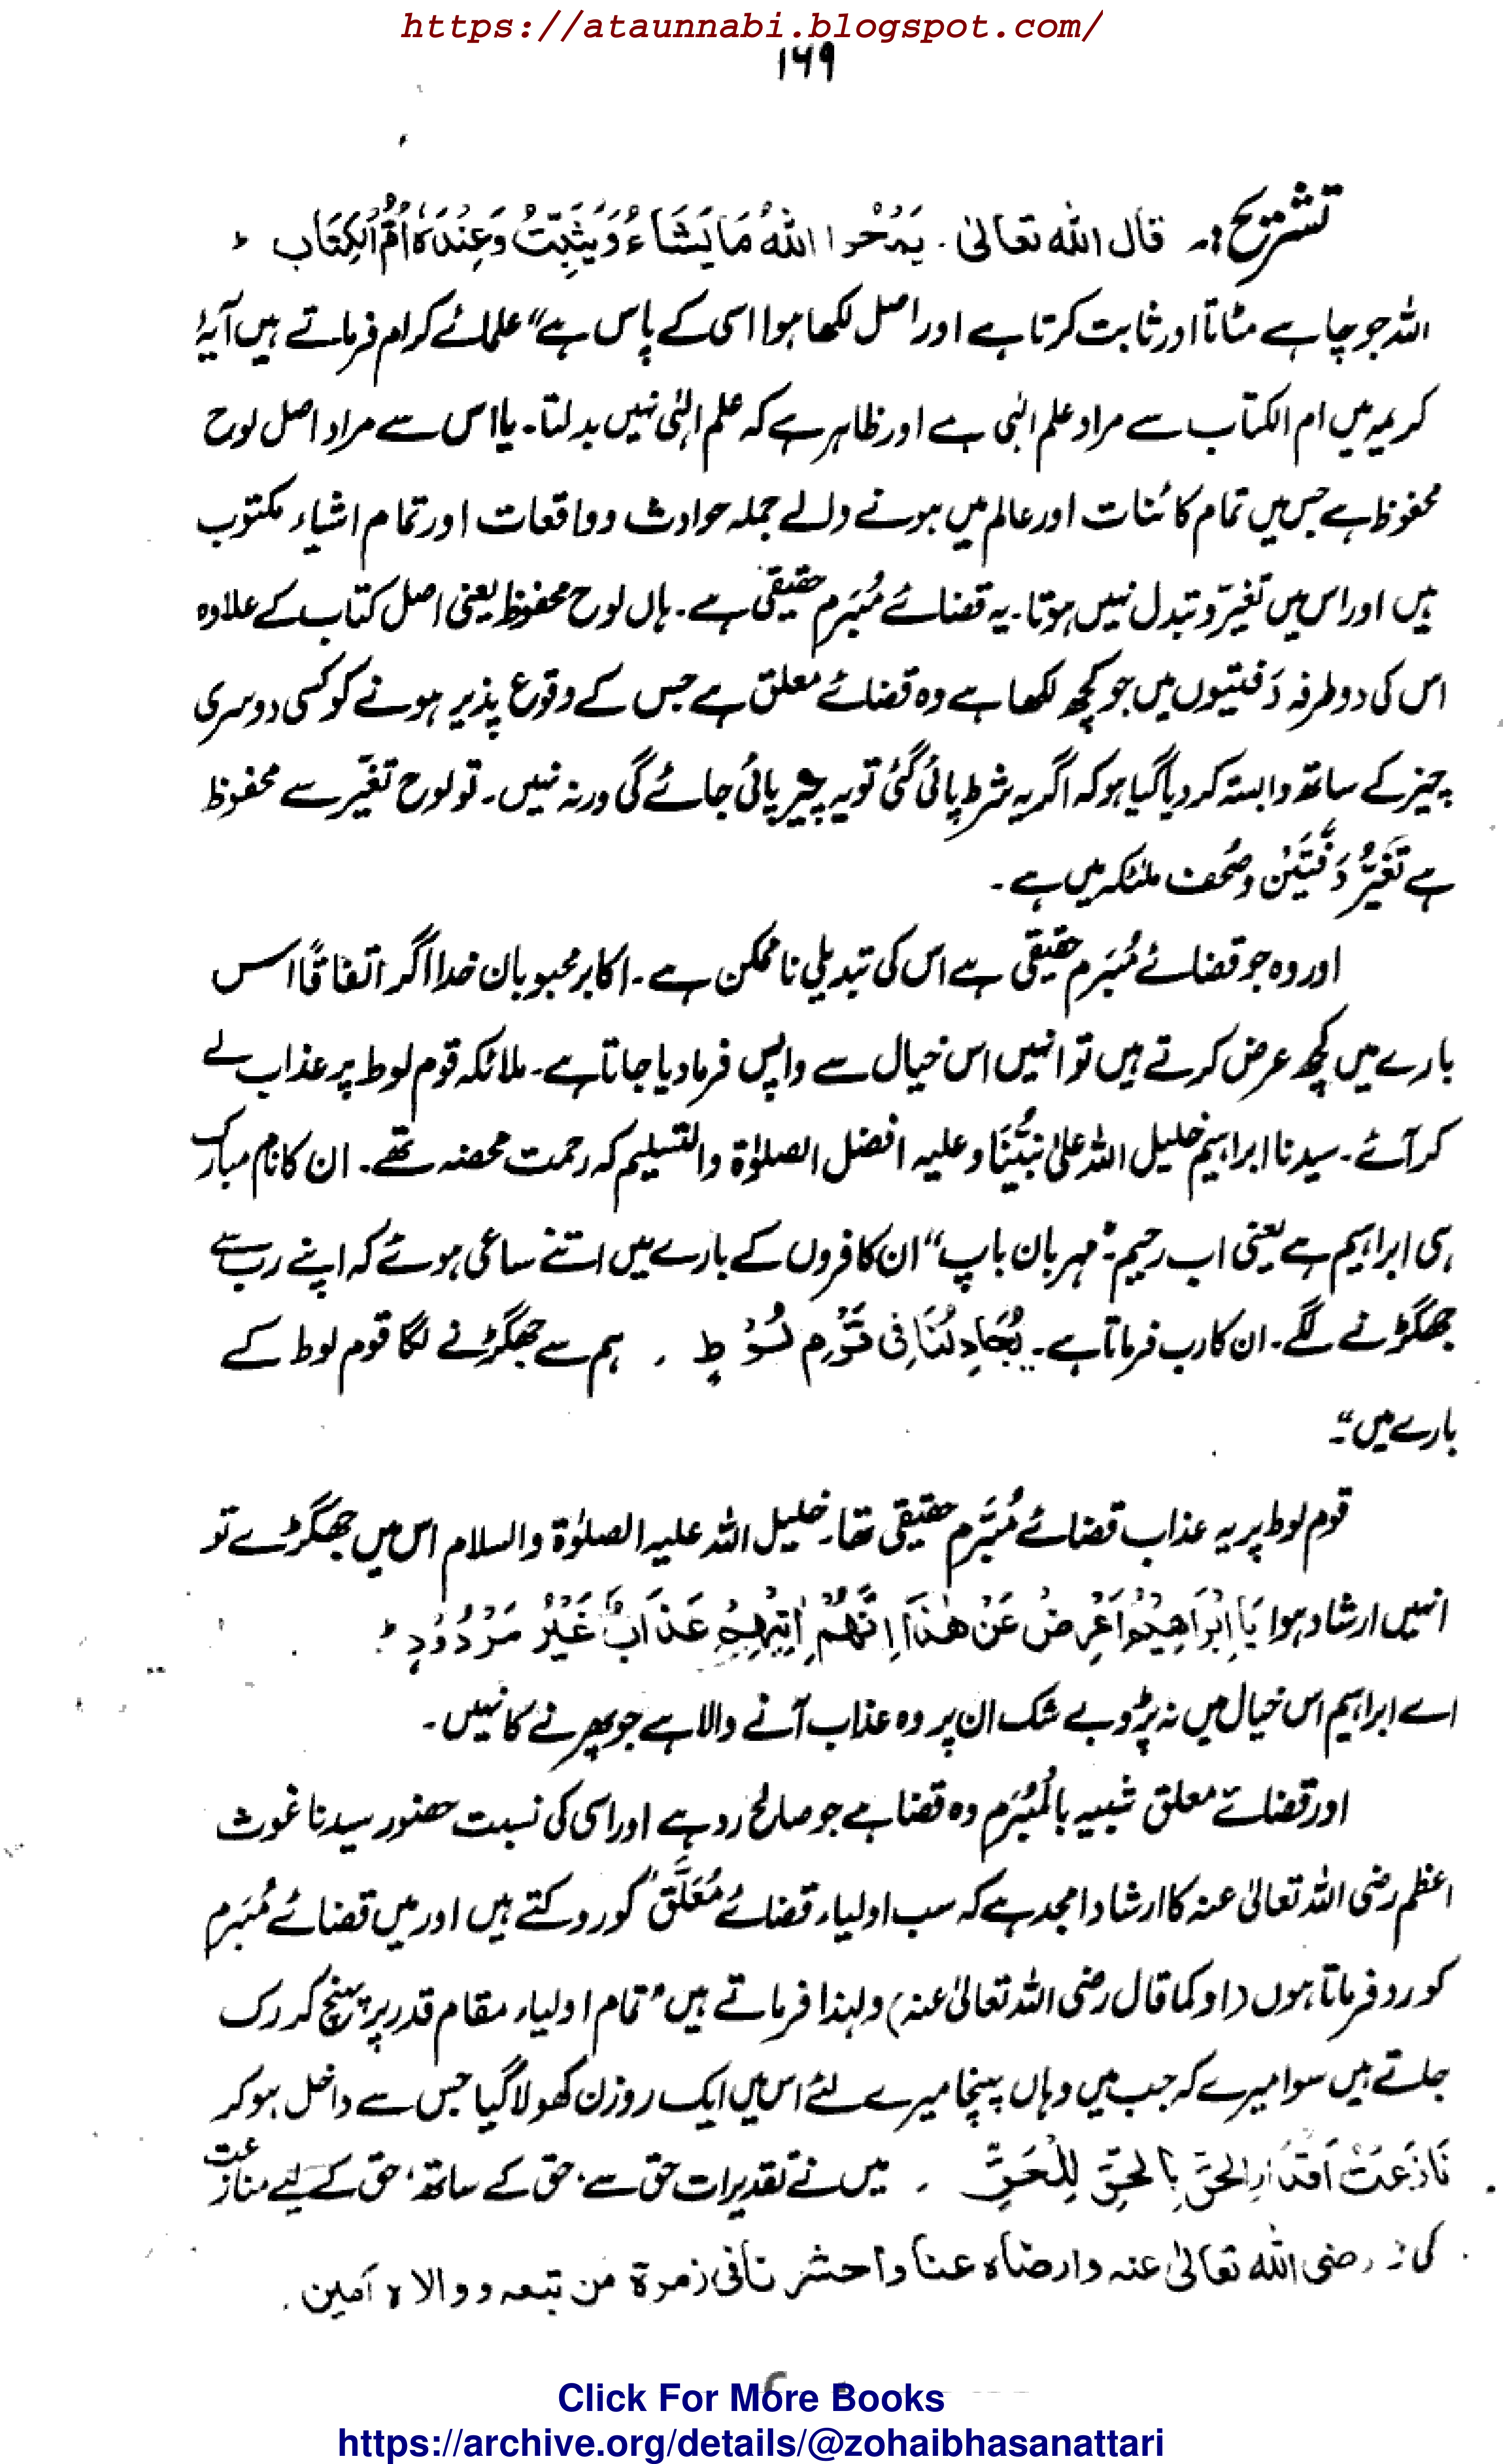 https://ataunnabi.blogspot.com/
۱۶۹
تشریح :۔ قال اللہ تعالیٰ ۔ یَمْحُوا اللہُ مَا یَشَاءُ وَیُثَبِّتُ وَعِنْدَہٗ اُمُّ الْکِتَاب ط
اللہ جو چاہے مٹاتا اور ثابت کرتا ہے اور اصل لکھا ہوا اسی کے پاس ہے“ علمائے کرام فرماتے ہیں آیۂ
کریمہ میں ام الکتاب سے مراد علم الٰہی ہے اور ظاہر ہے کہ علم الٰہی نہیں بدلتا۔ یا اس سے مراد اصل لوح
محفوظ ہے جس میں تمام کائنات اور عالم میں ہونے والے جملہ حوادث و واقعات اور تمام اشیاء مکتوب
ہیں اور اس میں تغیّر و تبدل نہیں ہوتا۔ یہ قضائے مُبْرَم حقیقی ہے۔ ہاں لوح محفوظ یعنی اصل کتاب کے علاوہ
اس کی دو طرفہ دَفتیوں میں جو کچھ لکھا ہے وہ قضائے معلق ہے جس کے وقوع پذیر ہونے کو کسی دوسری
چیز کے ساتھ وابستہ کر دیا گیا ہو کہ اگر یہ شرط پائی گئی تو یہ چیز پائی جائے گی ورنہ نہیں۔ تو لوح تغیّر سے محفوظ
ہے تَغَیُّر دَفَّتَیْن وصُحف ملئکہ میں ہے ۔
اور وہ جو قضائے مُبْرَم حقیقی ہے اس کی تبدیلی ناممکن ہے ۔ اکابر محبوبان خدا اگر اتفاقًا اس
بارے میں کچھ عرض کرتے ہیں تو انہیں اس خیال سے واپس فرما دیا جاتا ہے۔ ملائکہ قوم لوط پر عذاب لے
کر آئے ۔ سیدنا ابراہیم خلیل اللہ علیٰ نَبِیِّنَا وعلیہ افضل الصلوٰۃ والتسلیم کہ رحمت محضہ تھے۔ ان کا نام مبارک
ہی ابراہیم ہے یعنی اب رحیم۔”مہربان باپ“ ان کافروں کے بارے میں اتنے ساعی ہوئے کہ اپنے رب سے
جھگڑنے لگے۔ ان کا رب فرماتا ہے۔ یُجَادِلُنَا فِی قَوْمِ لُوْطٍ ۔ ہم سے جھگڑنے لگا قوم لوط کے
بارے میں“۔
قوم لوط پر یہ عذاب قضائے مُبْرَم حقیقی تھا۔ خلیل اللہ علیہ الصلوٰۃ والسلام اس میں جھگڑے تو
انہیں ارشاد ہوا یَا اِبْرَاھِیْمُ اَعْرِضْ عَنْ ھٰذَا اِنَّھُمْ اٰتِیْھِمْ عَذَابٌ غَیْرُ مَرْدُوْدٍ ط
اے ابراہیم اس خیال میں نہ پڑو بے شک ان پر وہ عذاب آنے والا ہے جو پھرنے کا نہیں ۔
اور قضائے معلق شبیہ بالمُبْرَم وہ قضا ہے جو صالح رد ہے اور اسی کی نسبت حضور سیدنا غوث
اعظم رضی اللہ تعالیٰ عنہ کا ارشاد امجد ہے کہ سب اولیاء قضائے مُعَلَّق کو روکتے ہیں اور میں قضائے مُبْرَم
کو رد فرماتا ہوں (او کما قال رضی اللہ تعالیٰ عنہ) ولہذا فرماتے ہیں ”تمام اولیاء مقام قدر پر پہنچ کر رک
جاتے ہیں سوا میرے کہ جب میں وہاں پہنچا میرے لئے اس میں ایک روزن کھولا گیا جس سے داخل ہو کر
نَازَعْتُ اَقْدَارَ الْحَقِّ بِالْحَقِّ لِلْحَقِّ ۔ میں نے تقدیرات حق سے، حق کے ساتھ، حق کے لیے منازعت
کی رضی اللہ تعالیٰ عنہ وارضاہ عنا واحشرنا فی زمرۃ من تبعہ و والاہ آمین ۔
Click For More Books
https://archive.org/details/@zohaibhasanattari